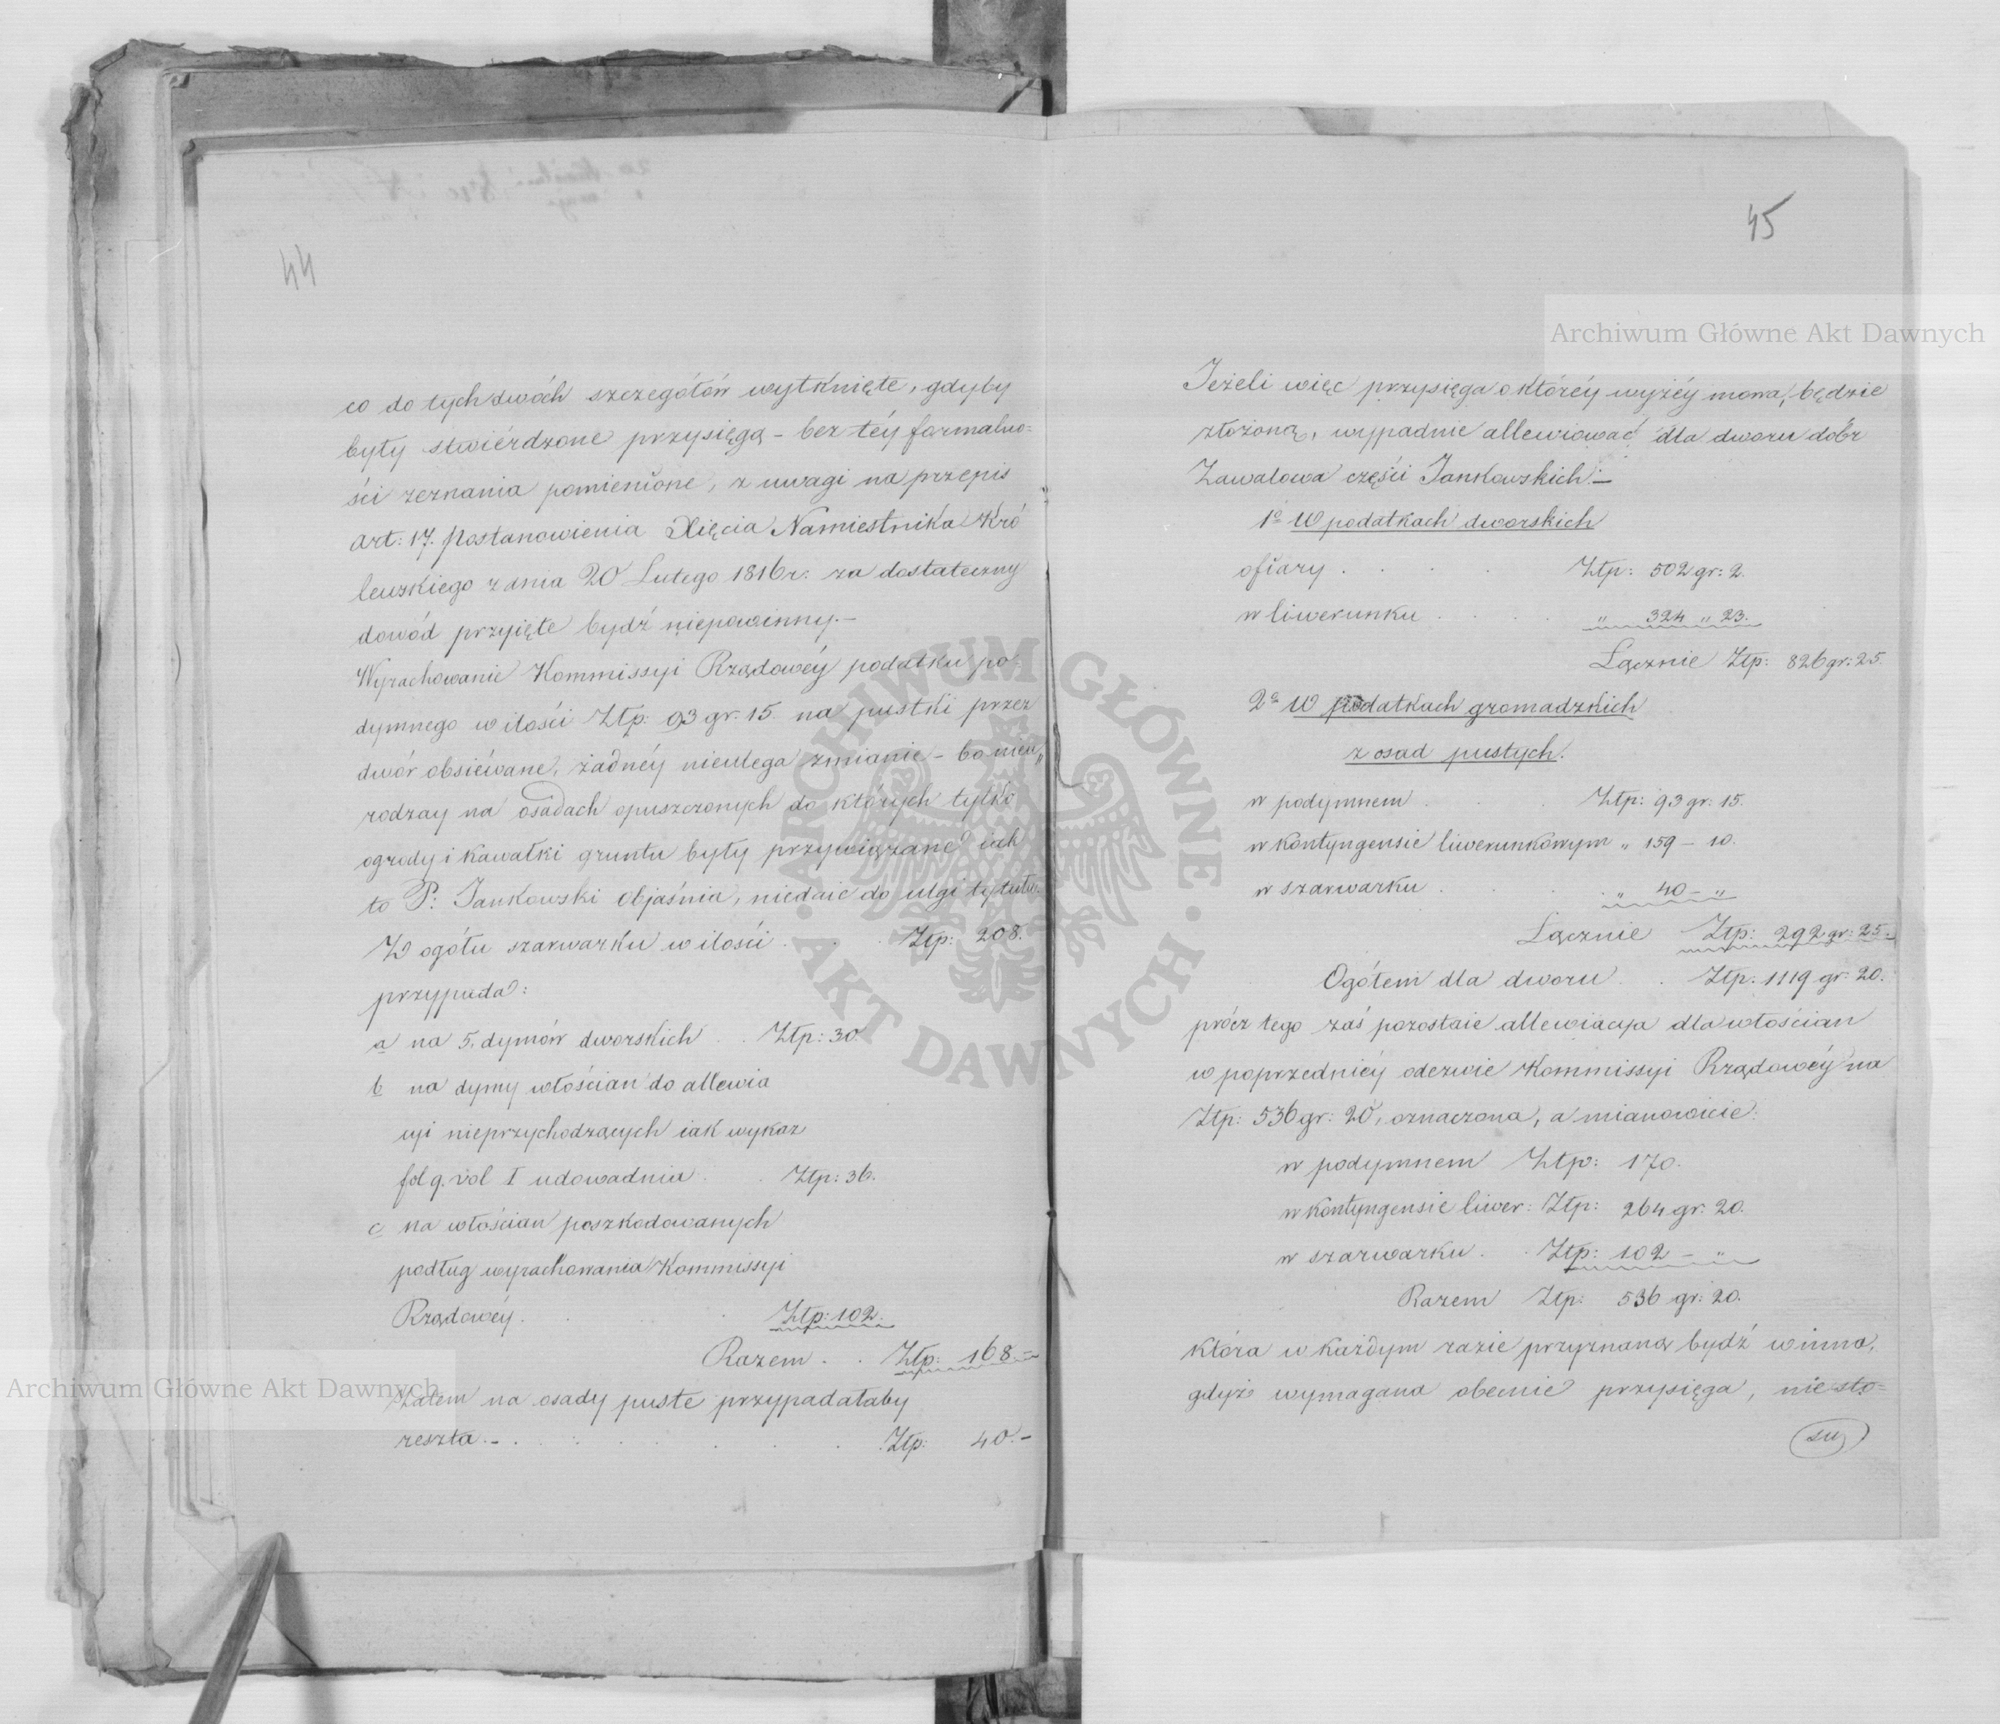 44
co do tych dwóch szczegółów wytknięte, gdyby
były stwiérdzone przysięgą - bez téy formalno=
ści zeznania pomienione, z uwagi na przepis
art: 17. Postanowienia Xięcia Namiestnika Kró
lewskiego z dnia 20 Lutego 1816 r: za dostateczny
dowód przyięte bydź niepowinny.-
Wyrachowanie Kommissyi Rządowéy podatku po=
dymnego w ilości Ztp: 93 gr: 15. na pustki przez
dwór obsiéwane, żadnéy nieulega zmianie - bo nieu„
rodzay na osadach opuszczonych do których tylko
ogrody i kawałki gruntu były przywiązane iak
to P: Jankowski objaśnia, niedaie do ulgi tytułu.
Z ogółu szarwarku w ilości . . . Ztp: 208.
przypada:
a na 5. dymów dworskich . . Ztp: 30
b na dymy włościan do allewia
cyi nieprzychodzących iak wykaz
fol 9. vol I udowadnia . . Ztp: 36.
c na włościan poszkodowanych
podług wyrachowania Kommissyi
Rządowéy . . . Ztp: 102.
Razem . . Ztp: 168.-
Zatem na osady puste przypadałaby
reszta.- . . . . . . . Ztp: 40.-
45
Jeżeli więc przysięga o któréy wyżéy mowa, będzie
złożoną, wypadnie allewiować dla dworu dóbr
Zawalowa części Jankowskich:-
1o W podatkach dworskich
ofiary . . . . Ztp: 502 gr: 2.
w liwerunku . . . . „ 324 „ 23.
Łącznie Ztp: 826 gr: 25.
2o W podatkach gromadzkich
z osad pustych.
w podymnem . . . Ztp: 93 gr: 15.
w kontyngensie liwerunkowym „ 159 - 10.
w szarwarku . . . . „ 40 - „
Łącznie Ztp: 292 gr: 25.
Ogółem dla dworu . . Ztp. 1119 gr: 20.
prócz tego zaś pozostaie allewiacya dla włościan
w poprzedniéy odezwie Kommissyi Rządowéy na
Ztp: 536 gr: 20, oznaczona, a mianowicie:
w podymnem Ztp: 170.
w kontyngensie liwer: Ztp: 264 gr: 20.
w szarwarku . . Ztp: 102 - „
Razem Ztp: 536 gr: 20.
która w każdym razie przyznaną bydź winna,
gdyż wymagana obecnie przysięga, niesto=
su
Archiwum Główne Akt Dawnych
Archiwum Główne Akt Dawnych
ARCHIWUM GŁÓWNE · AKT DAWNYCH ·